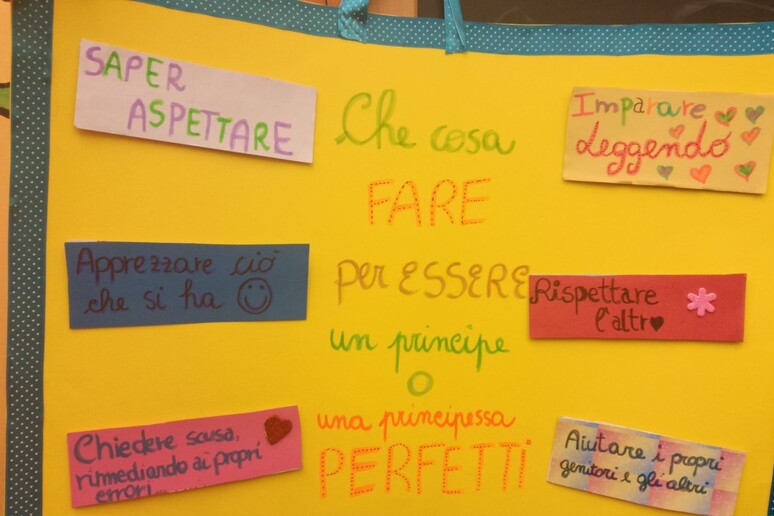 SAPER
ASPETTARE
Apprezzare ciò
che si ha
Chiedere scusa,
rimediando ai propri
errori...
Che cosa
FARE
per ESSERE
un principe
O
una principessa
PERFETTI
Imparare
Leggendo
Rispettare
l'altro
Aiutare i propri
genitori e gli altri